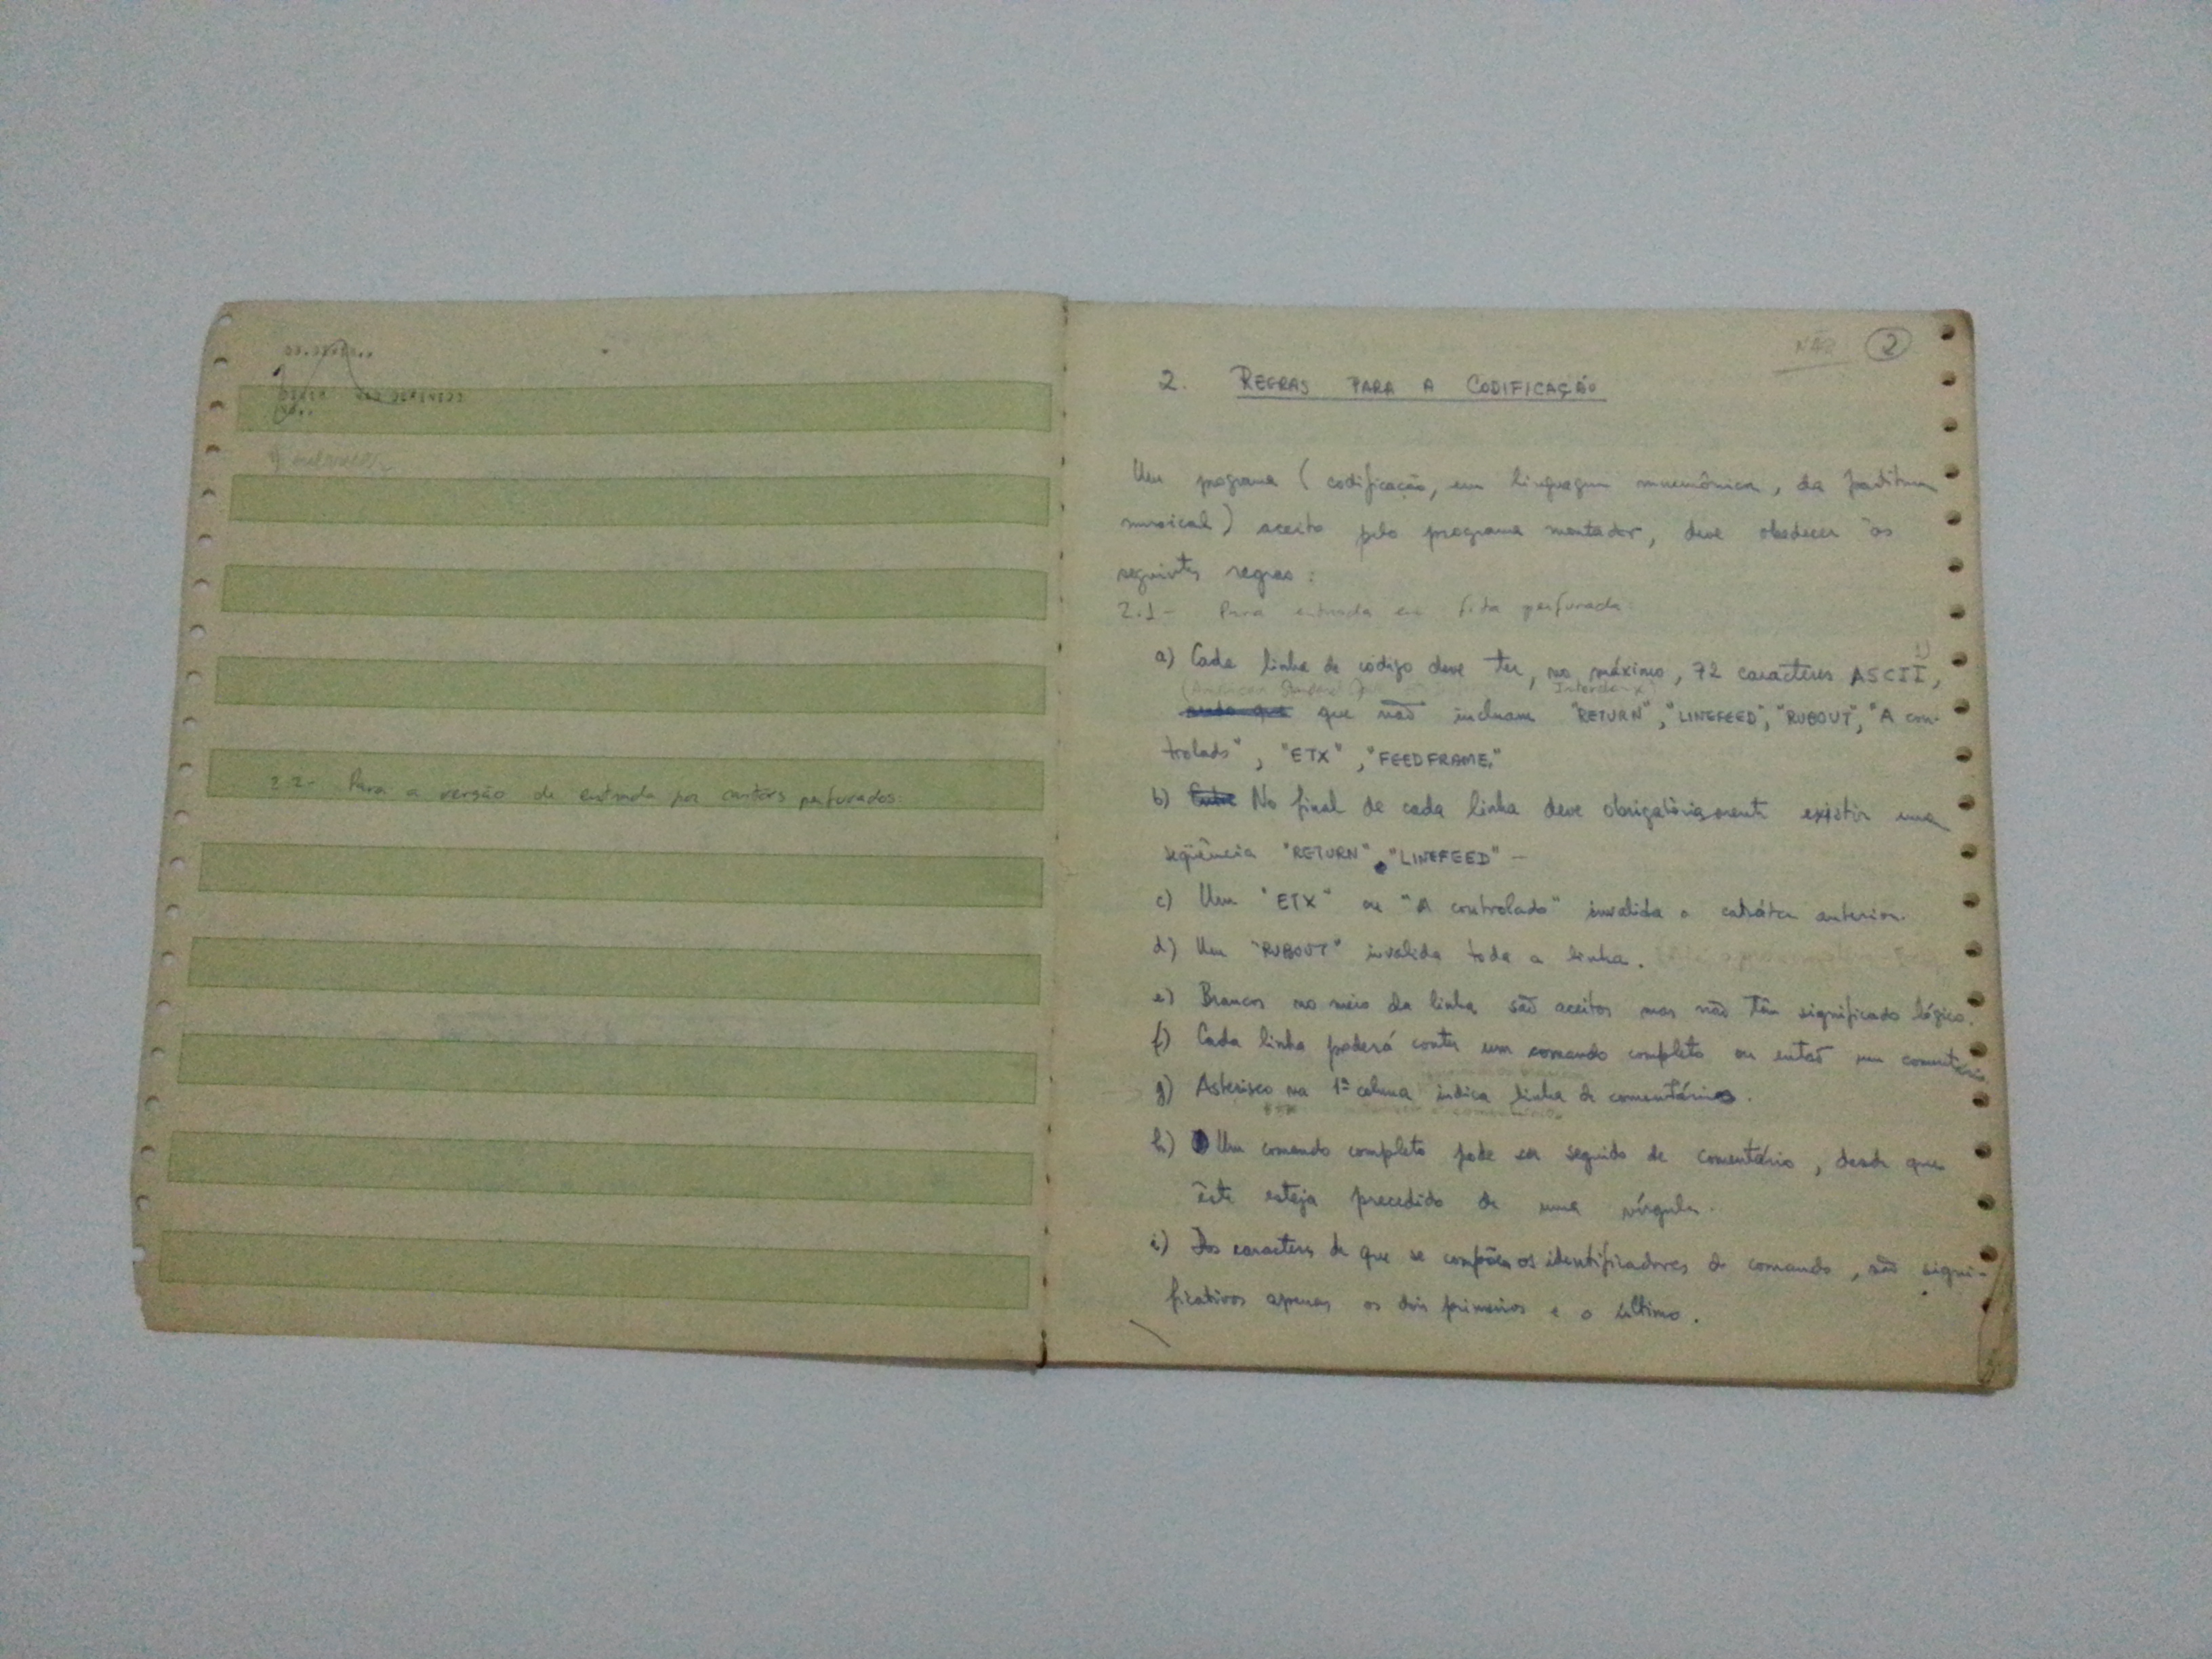 2.2 - Para a versão de entrada por cartões perfurados.
NÃO 2
2. REGRAS PARA A CODIFICAÇÃO
Um programa (codificação, em linguagem mnemônica, da partitura
musical) aceito pelo programa montador, deve obedecer às
seguintes regras:
2.1 - Para entrada em fita perfurada
a) Cada linha de código deve ter, no máximo, 72 caracteres ASCII,
que não incluam "RETURN", "LINEFEED", "RUBOUT", "A con-
trolado", "ETX", "FEEDFRAME,"
b) No final de cada linha deve obrigatòriamente existir uma
seqüência "RETURN", "LINEFEED" -
c) Um "ETX" ou "A controlado" invalida o caráter anterior.
d) Um "RUBOUT" invalida toda a linha.
e) Brancos no meio da linha são aceitos mas não têm significado lógico.
f) Cada linha poderá conter um comando completo ou então um comentário
g) Asterisco na 1ª coluna indica linha de comentários.
h) Um comando completo pode ser seguido de comentário, desde que
êste esteja precedido de uma vírgula.
i) Dos caracteres de que se compõem os identificadores de comando, são signi-
ficativos apenas os dois primeiros e o último.